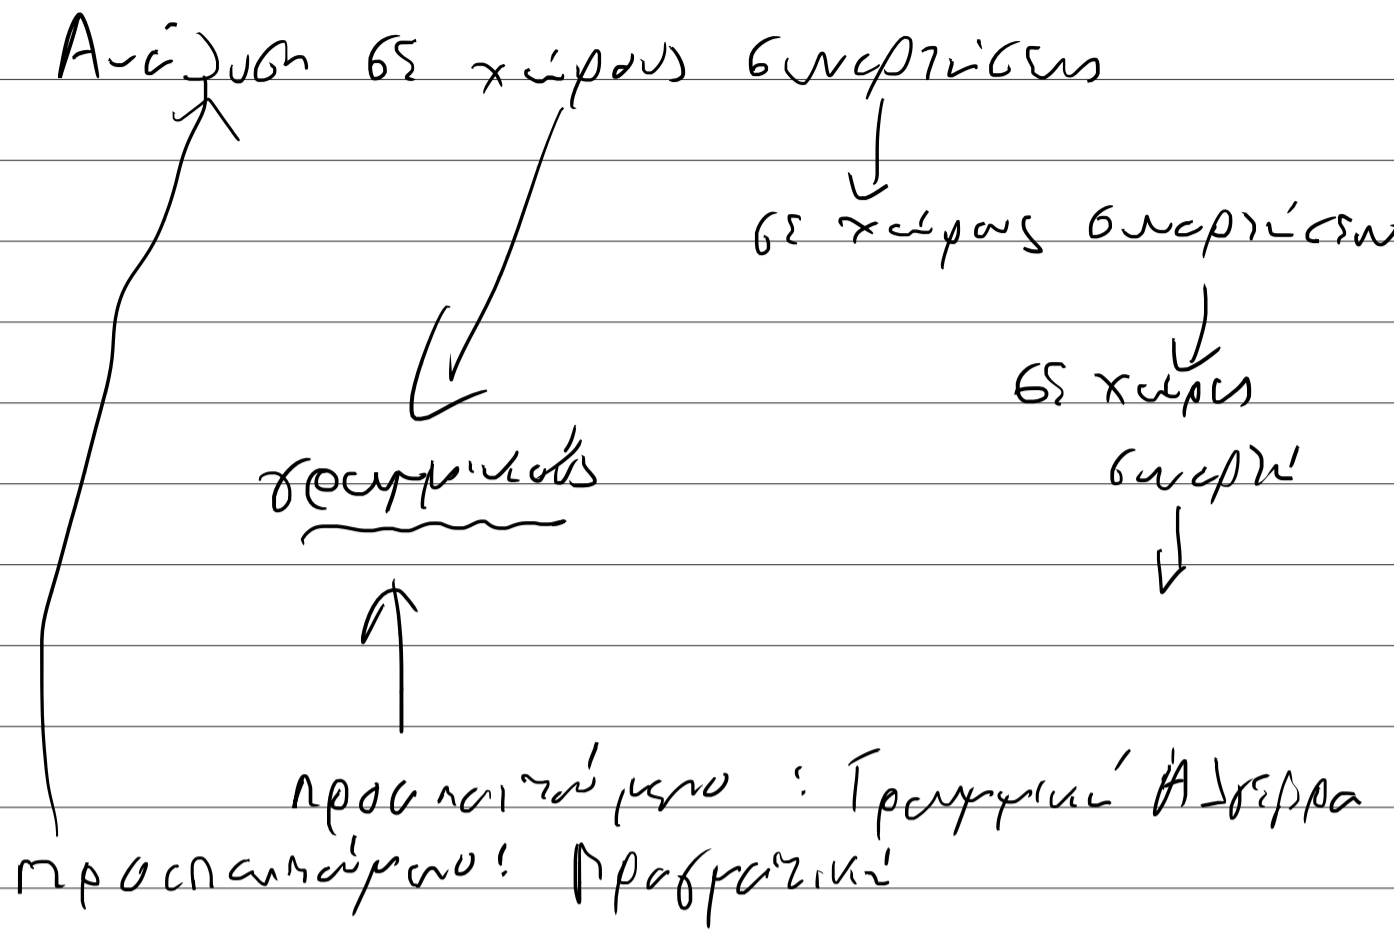 Ανάλυση σε χώρους συναρτήσεων
σε χώρους συναρτήσεων
σε χώρους
συναρτή
γραμμικούς
προαπαιτούμενο : Γραμμική Άλγεβρα
προαπαιτούμενο : Πραγματική